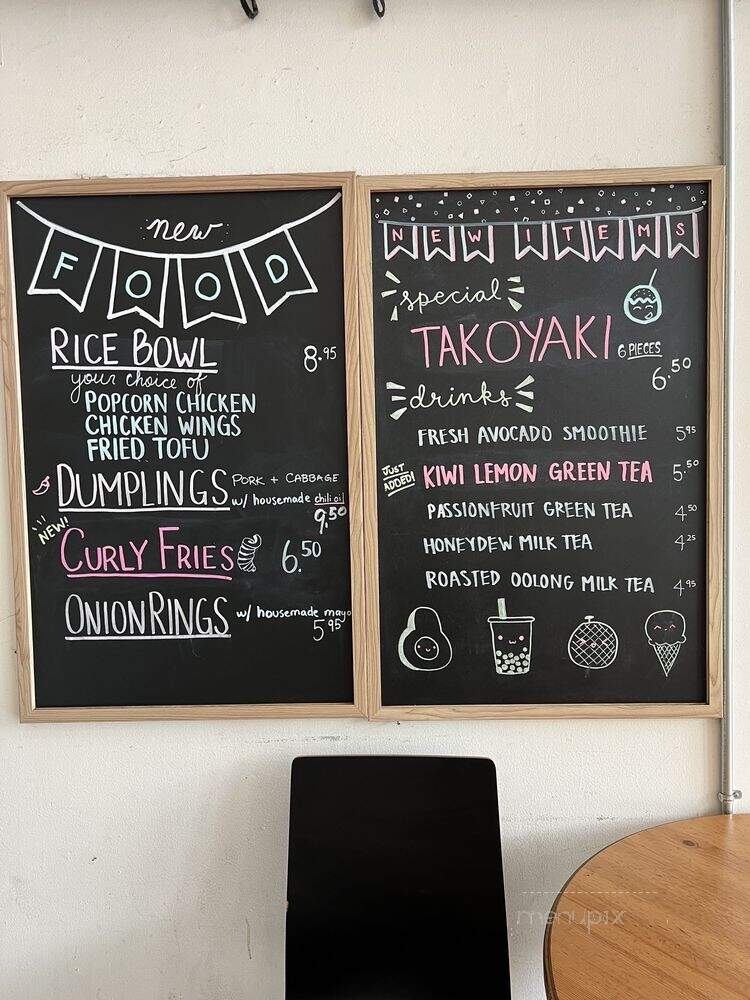 new
FOOD
RICE BOWL 8.95
your choice of
POPCORN CHICKEN
CHICKEN WINGS
FRIED TOFU
DUMPLINGS PORK + CABBAGE
w/ housemade chili oil
9.50
NEW!
CURLY FRIES 6.50
ONION RINGS w/ housemade mayo
5.95
NEW ITEMS
special
TAKOYAKI 6 PIECES
6.50
drinks
FRESH AVOCADO SMOOTHIE 5.95
JUST ADDED! KIWI LEMON GREEN TEA 5.50
PASSIONFRUIT GREEN TEA 4.50
HONEYDEW MILK TEA 4.25
ROASTED OOLONG MILK TEA 4.95
menupix